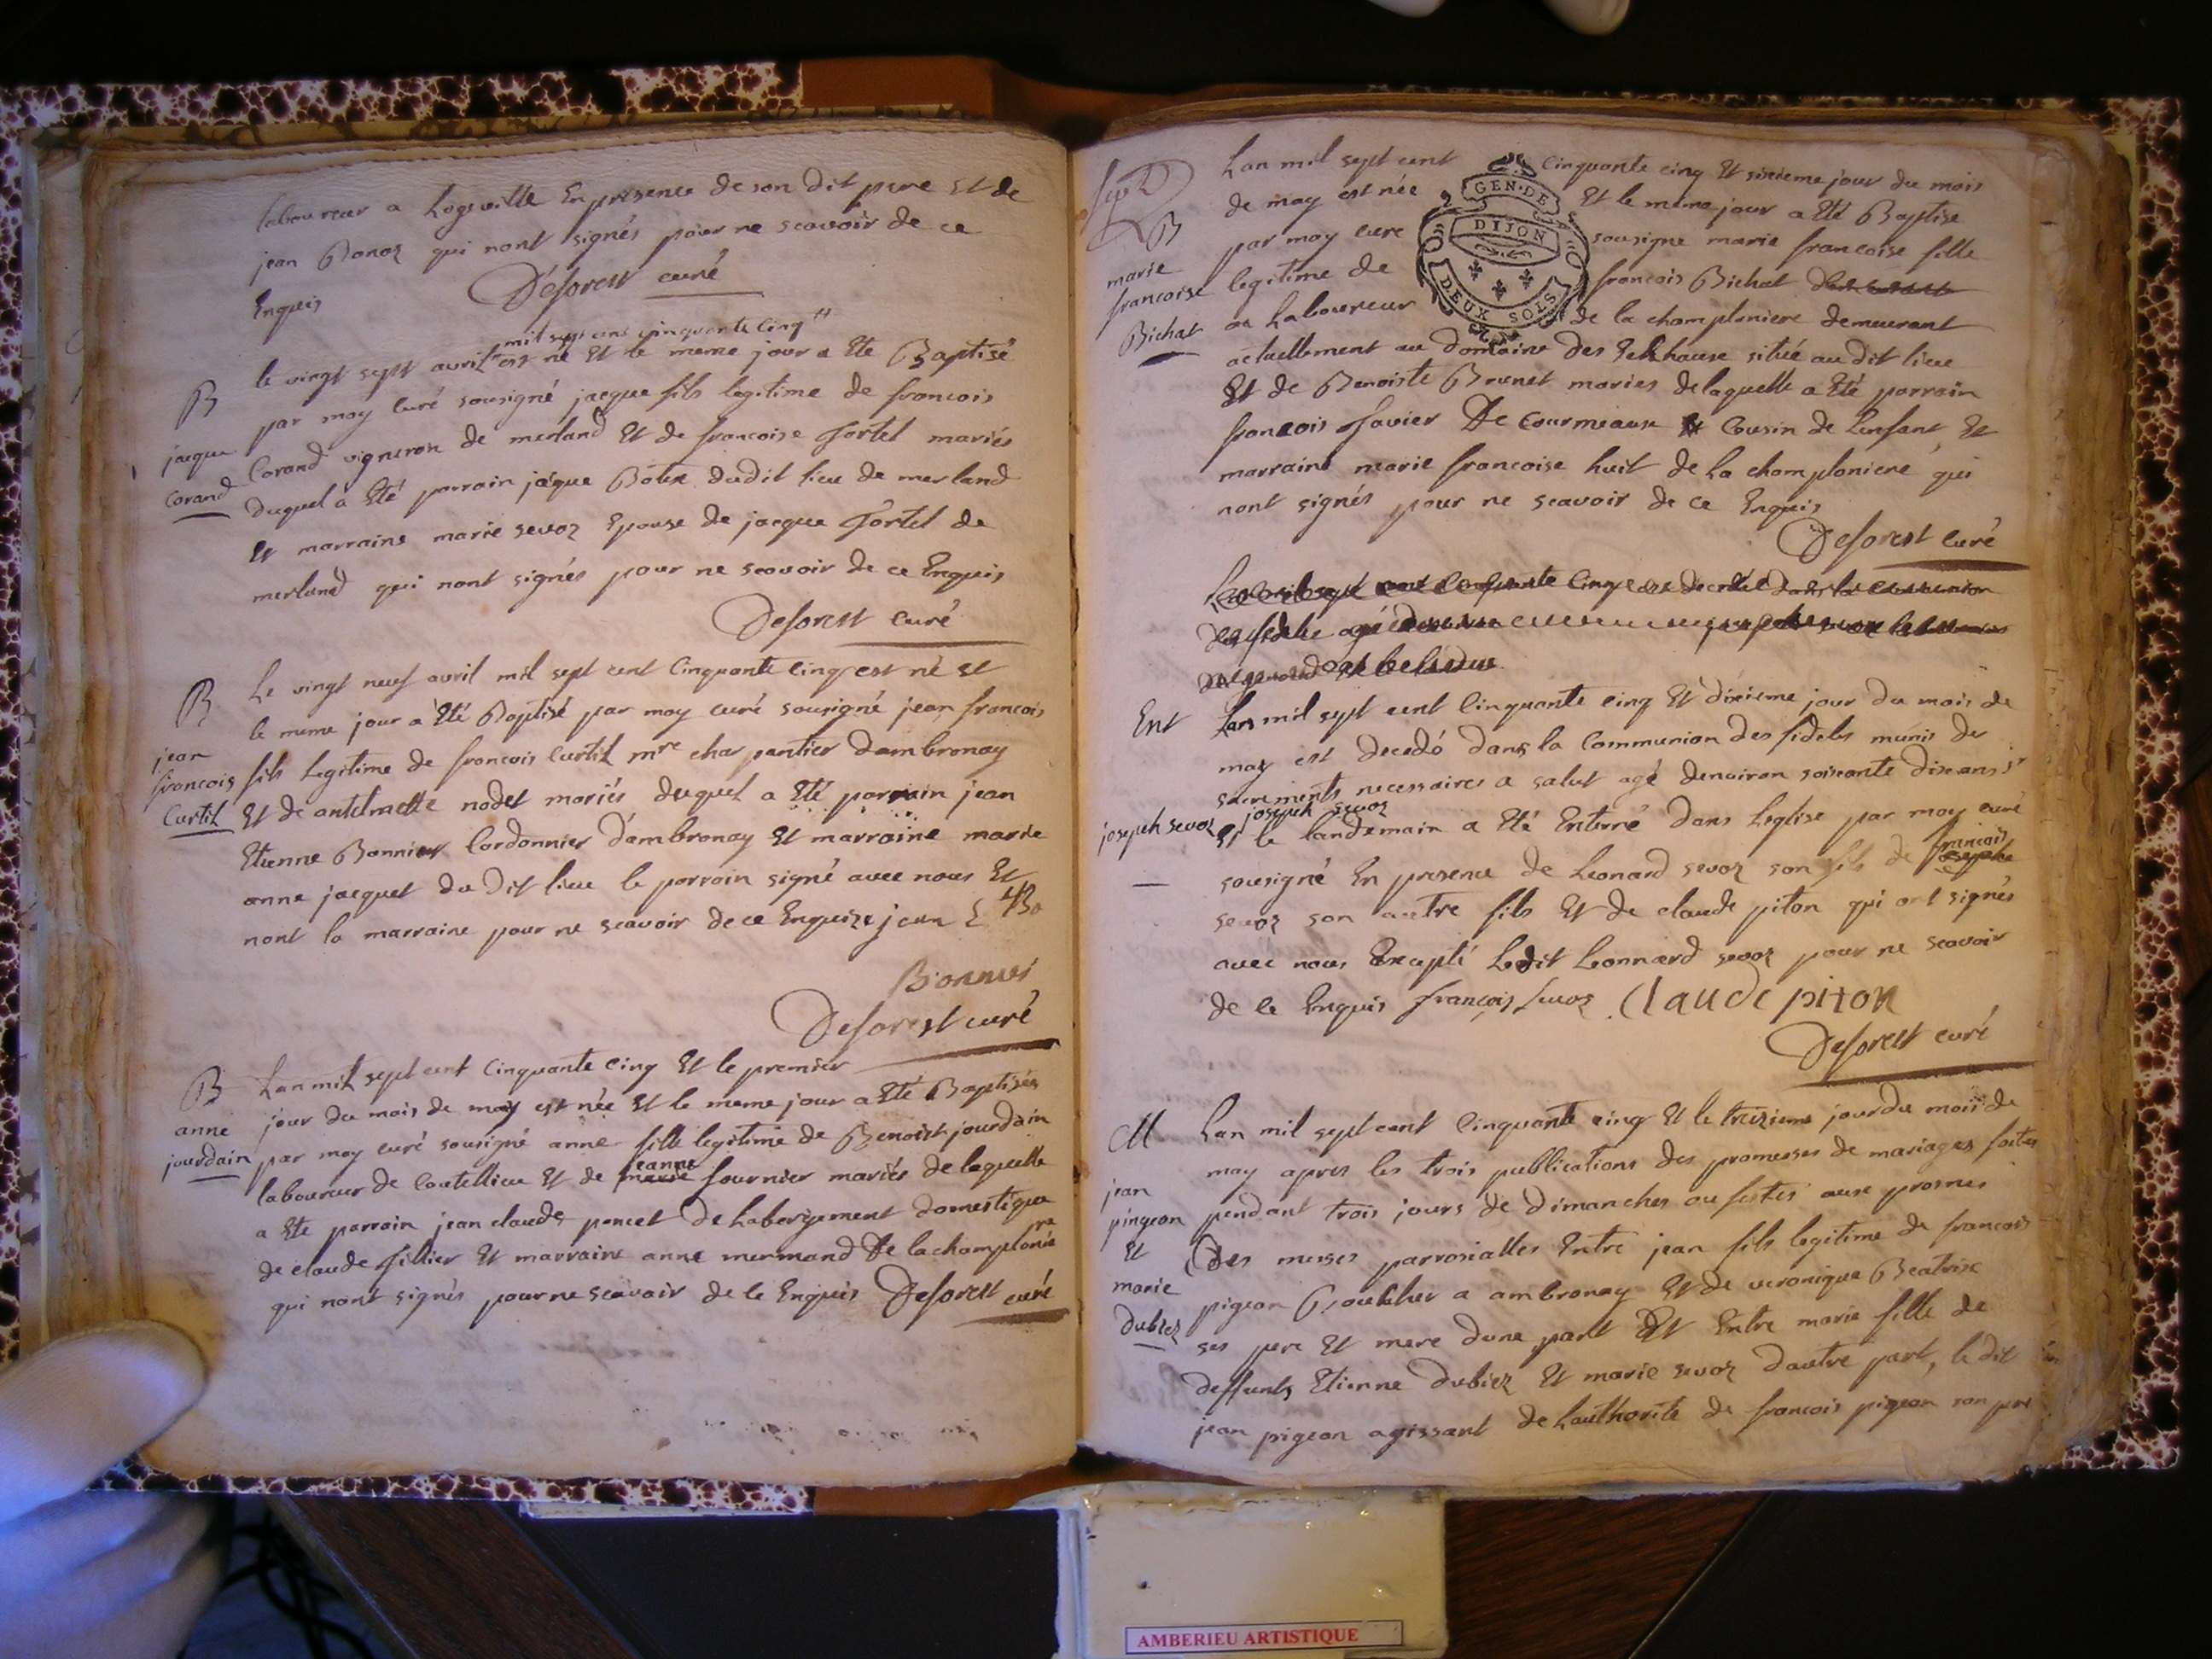 laboureur a Logeville En presence de son dit pere Et de
jean Bonoz qui nont signés pour ne scavoir de ce
Enquis Deforest curé
mil sept cent cinquante cinq
le vingt sept avril est né Et le meme jour a Eté Baptisé
B
par moy curé sousigné jacque fils legitime de francois
jacque
Corand vigneron de merland Et de francoise fortel mariés
Corand
duquel a Eté parrain jacque dudit lieu de merland
Et marraine marie sevoz Epouse de jacque fortel de
merland qui nont signés pour ne scavoir de ce Enquis
Deforest curé
B
Le vingt neuf avril mil sept cent Cinquante cinq est né et
le meme jour a Eté Baptisé par moy curé sousigné jean francois
jean
francois
Curtil
fils legitime de francois Curtil mre charpantier dambronay
Et de antelmette nodet mariés duquel a Eté parrain jean
Etienne Bonnier Cordonnier dambronay Et marraine marie
anne jacquet du dit lieu le parrain signé avec nous Et
nont la marraine pour ne scavoir de ce Enquise jean
Deforest curé
B
Lan mil sept cent Cinquante cinq Et le premier
anne
jourdain
jour du mois de may est née Et le meme jour a Eté Baptisée
par moy curé sousigné anne fille legitime de Benoist jourdain
jeanne
laboureur de Coutellieu Et de marie fournier mariés de laquelle
a Eté parrain jean claude poncet de Labergement domestique
de claude fillier Et marraine anne mermand de la champlonie
qui nont signés pour ne scavoir de ce Enquis Deforest curé
B
marie
francoise
Bichat
GEN. DE
DIJON
DEUX SOLS
Lan mil sept cent Cinquante cinq Et sixieme jour du mois
de may est née Et le meme jour a Eté Baptise
par moy curé sousigne marie francoise fille
legitime de francois Bichat
Laboureur de la champloniere demeurant
actuellement au domaine des situé au dit lieu
Et de Benoiste Brunet maries de laquelle a Eté parrain
francois Cousin de Lenfant Et
marraine marie francoise huit de La champloniere qui
nont signés pour ne scavoir de ce Enquis
Deforest curé
Ent
Lan mil sept cent Cinquante cinq Et dixieme jour du mois de
may est decedé dans la Communion des fideles munis des
sacrements necessaires a salut agé denviron soixante dix ans
joseph sevoz
joseph sevoz
Et le landemain a Eté Enterré dans Leglise par moy curé
francois
sousigné En presence de Leonard sevoz son fils de
sevoz son autre fils Et de claude piton qui ont signés
avec nous Excepté Ledit Leonnard sevoz pour ne scavoir
de ce Enquis françois sevoz Claude piton
Deforest curé
M
jean
pingeon
Et
marie
dubiez
Lan mil sept cent Cinquante cinq Et le treizieme jour du mois de
may apres les trois publications des promesses de mariages faites
pendant trois jours de dimanches ou festes aux prosnes
des messes parrosialles Entre jean fils legitime de francois
pigeon a ambronay Et de veronique Beatrix
ses pere Et mere dune part Et Entre marie fille de
deffunts Etienne dubiez Et marie sevoz dautre part, le dit
jean pigeon agissant de Lauthorité de francois pigeon son pere
AMBERIEU ARTISTIQUE